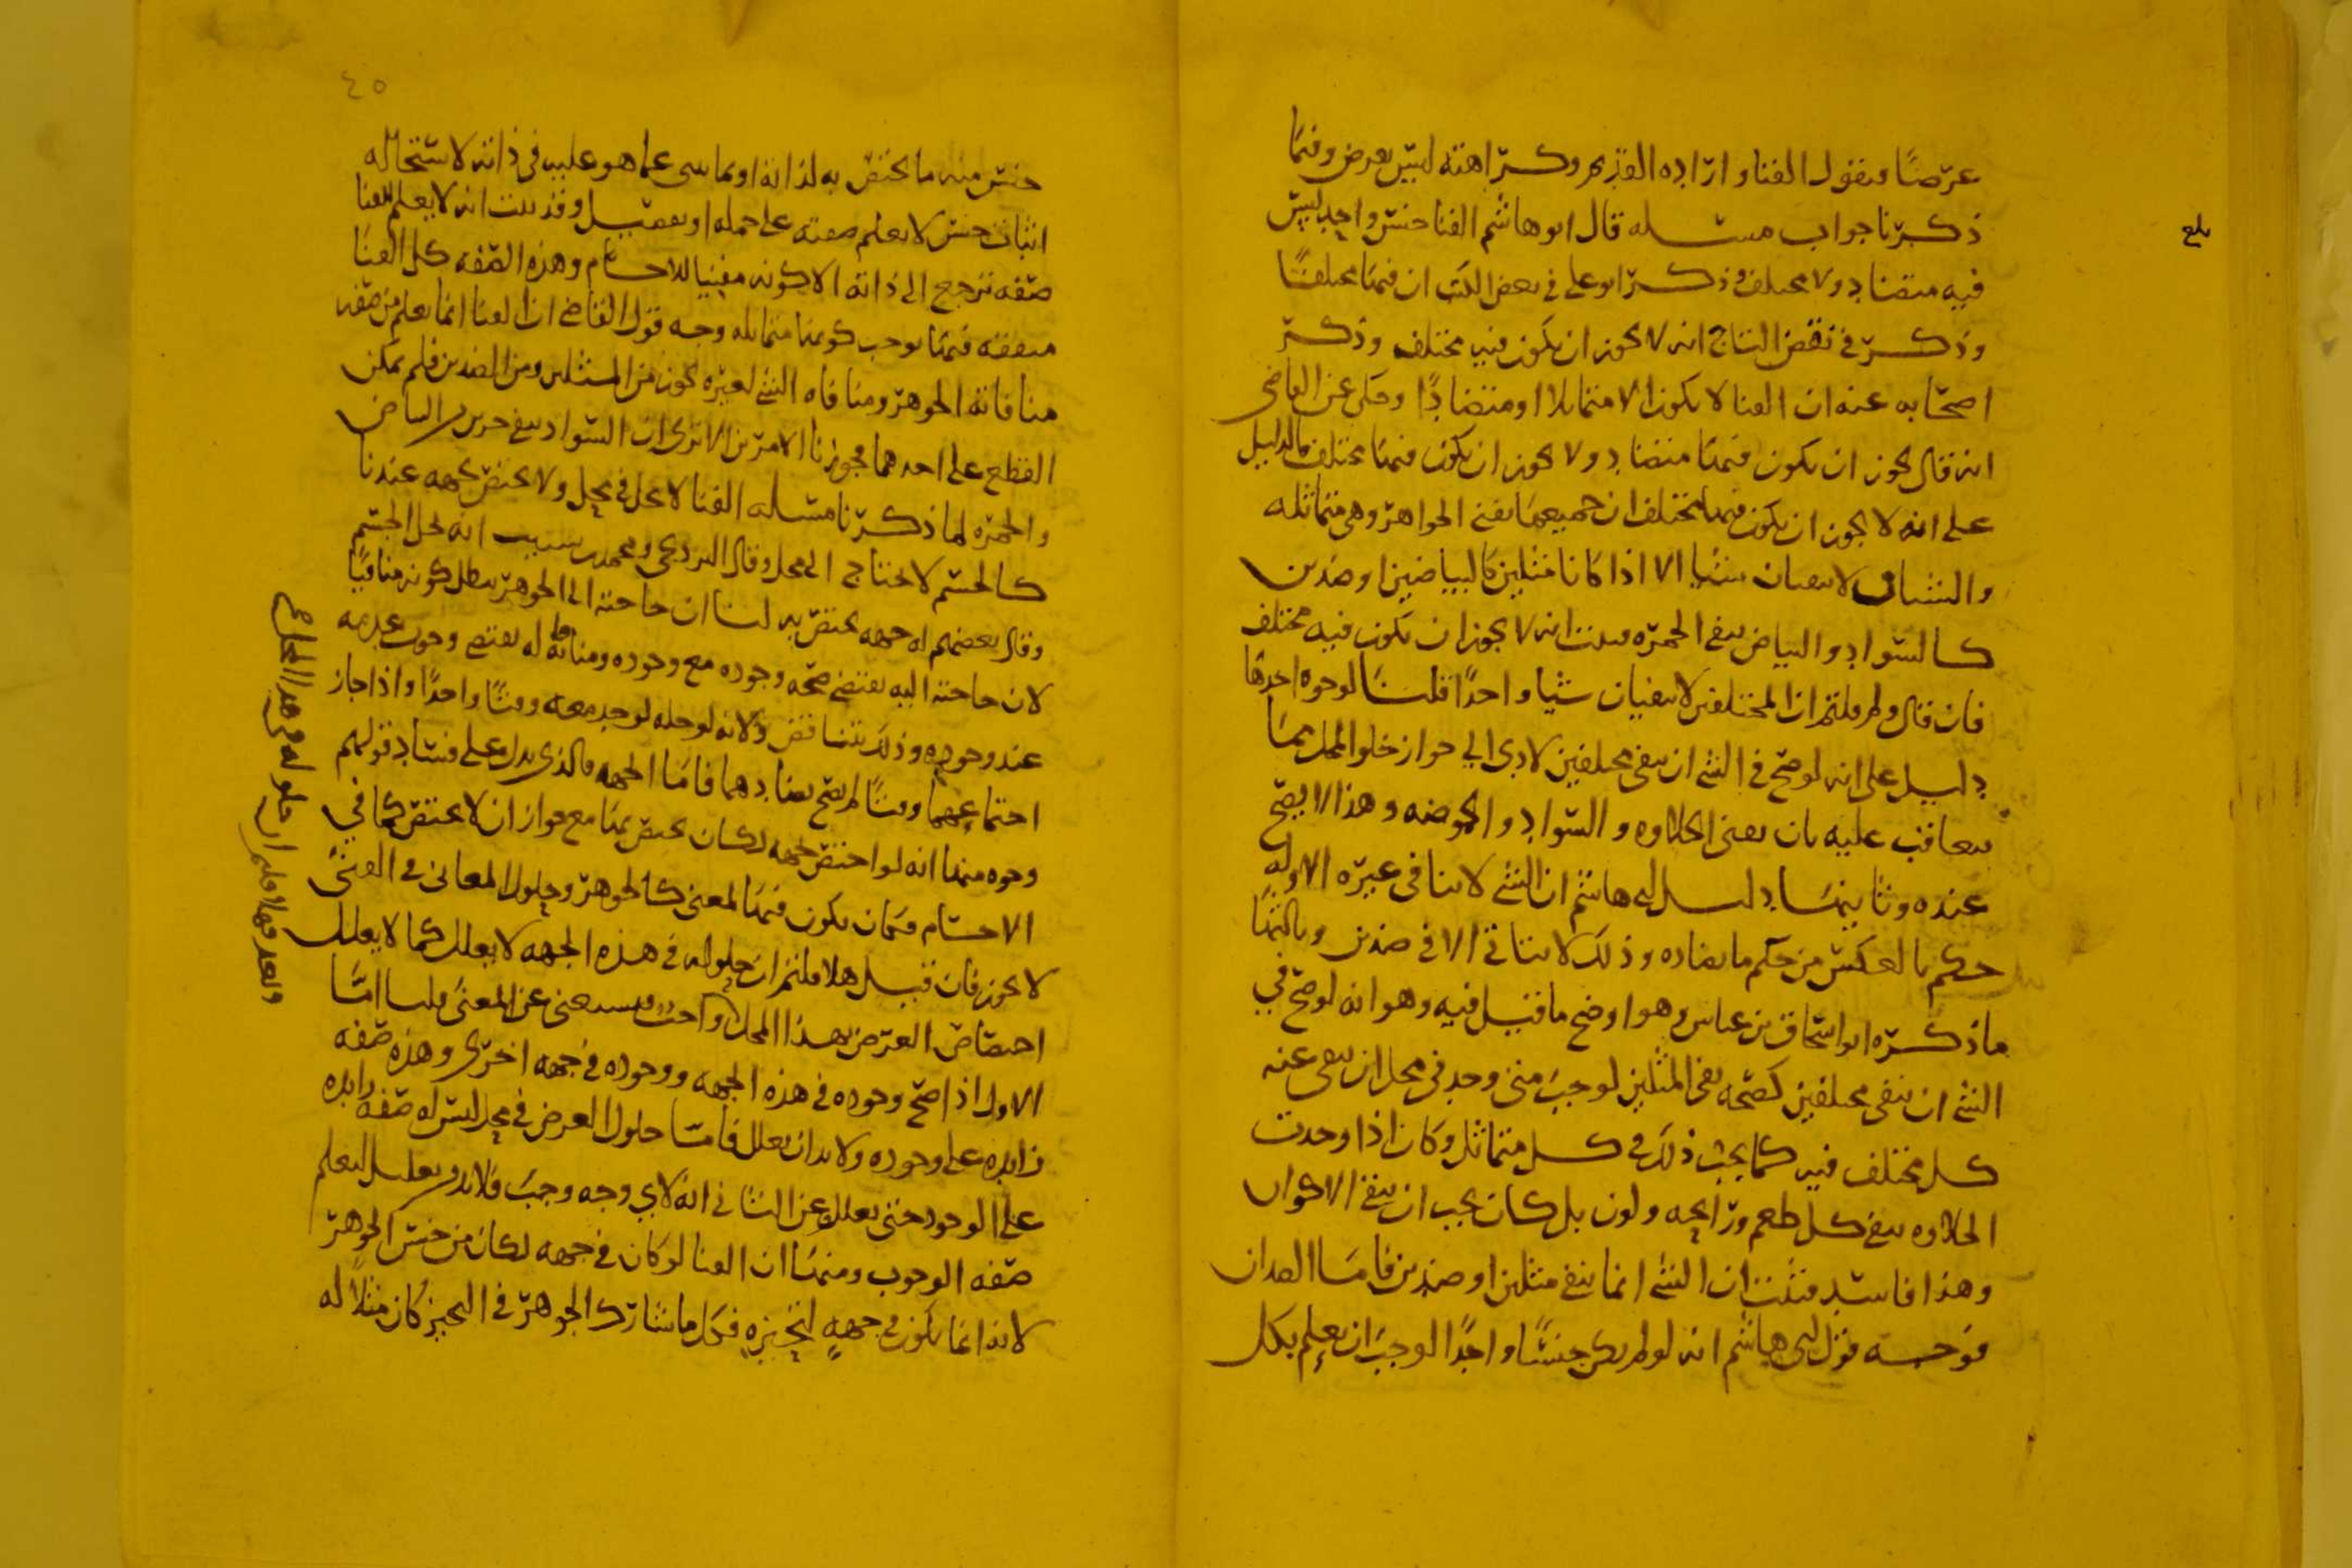 عرضًا ونقول الفنا وارادة القديم وكراهته ليس بعرض وفيما
ذكرنا جواب مسله قال ابو هاشم الفنا جنس واحد ليس
فيه متضاد ولا مختلف وذكر ابو علي في بعض الكتب ان فيها مختلفًا
وذكر في نقض التاج انه لا يجوز ان يكون فيه مختلف وذكر
اصحابه عنه ان الفنا لا يكون الا متماثلا او متضادًا وحكي عن القاضي
انه قال يجوز ان يكون فيها متضاد ولا يجوز ان يكون فيها مختلف فالدليل
على انه لا يجوز ان يكون فيها مختلف ان جميعها تفني الجواهر وهي متماثله
والشيان لا ينفيان شيا الا اذا كانا مثلين كالبياضين او ضدين
كالسواد والبياض ينفي الحمره فبينت انه لا يجوز ان يكون فيه مختلف
فان قال ولم قلتم ان المختلفين لا ينفيان شيا واحدًا قلنا لوجوه احدها
دليل على انه لو صح في الشي ان ينفي مختلفين لادى الي جواز خلو المحل مما
يتعاقب عليه بان يفني الحلاوه والسواد والحموضه وهذا لا يصح
عنده وثانيها دليل ابي هاشم ان الشي لا ينافي غيره الا وله
حكم بالعكس من حكم ما يضاده وذلك لا يتاتى الا في ضدين وثالثها
ما ذكره ابو اسحاق بن عياش وهو اوضح ما قيل فيه وهو انه لو صح في
الشي ان ينفي مختلفين كصحه نفي المثلين لوجب متى وجد في محل ان ينفي عنه
كل مختلف فيه كما يجب ذلك في كل متماثل وكان اذا وجدت
الحلاوه ينفي كل طعم ورايحه ولون بل كان يجب ان ينفي الاكوان
وهذا فاسد فثبت ان الشي انما ينفي مثلين او ضدين فاما الضدان
فوجه قول ابي هاشم انه لو لم يكن جنسًا واحدًا لوجب ان يعلم بكل
بلع
٤٥
جنس منه ما يختص به لذاته او بما ينبي عما هو عليه في ذاته لاستحاله
اثبات جنس لا يعلم صفته على جمله او تفصيل وقد ثبت انه لا يعلم للفنا
صفه ترجع الى ذاته الا كونه مفنيا للاجسام وهذه الصفه كل الفنا
متفقه فيها يوجب كونها متماثله وجه قول القاضي ان الفنا انما يعلم من صفته
منافاته الجوهر ومنافاه الشي لغيره يجوز من المثلين ومن الضدين فلم يمكن
القطع على احدهما فجوزنا الامرين الا ترى ان السواد ينفي جزين البياض
والحمره لما ذكرنا مسله الفنا لا يحل في محل ولا يختص بجهه عندنا
كالجسم لا يحتاج الى محل وقال البردعي ومحمد بن شبيب انه يحل الجسم
وقال بعضهم له جهه يختص به لنا ان حاجته الى الجوهر يبطل كونه منافيًا
لان حاجته اليه يقتضي صحه وجوده مع وجوده ومنافاته له يقتضي وجوب عدمه
عند وجوده وذلك يتناقض ولانه لو حله لوجد معه وقتًا واحدًا واذا جاز
اجتماعهما وقتًا لم يصح تضادهما فاما الجهه فالذي يدل على فساد قولهم
وجوه منها انه لو اختص بجهه لكان يختص بها مع جواز ان لا يختص كما في
الاجسام فكان يكون فيها لمعنى كالجوهر وحلول المعاني في الفنى
لا يجوز فان قيل هلا قلتم ان حلوله في هذه الجهه لا يعلل كما لا يعلل
اختصاص العرض بهذا المحل واجب فيستغني عن المعنى قلنا اما
الاول اذا صح وجوده في هذه الجهه ووجوده في جهه اخرى وهذه صفه
زايده على وجوده ولا بد ان يعلل فاما حلول العرض في محل ليس له صفه زايده
على الوجود حتى يعلل وعن الثاني انه لاي وجه وجب فلا بد من تعليل ليعلم
صفه الوجوب ومنها ان الفنا لو كان في جهه لكان من جنس الجوهر
لانه انما يكون في جهةٍ لتحيزه فكل ما شارك الجوهر في التحيز كان مثلًا له